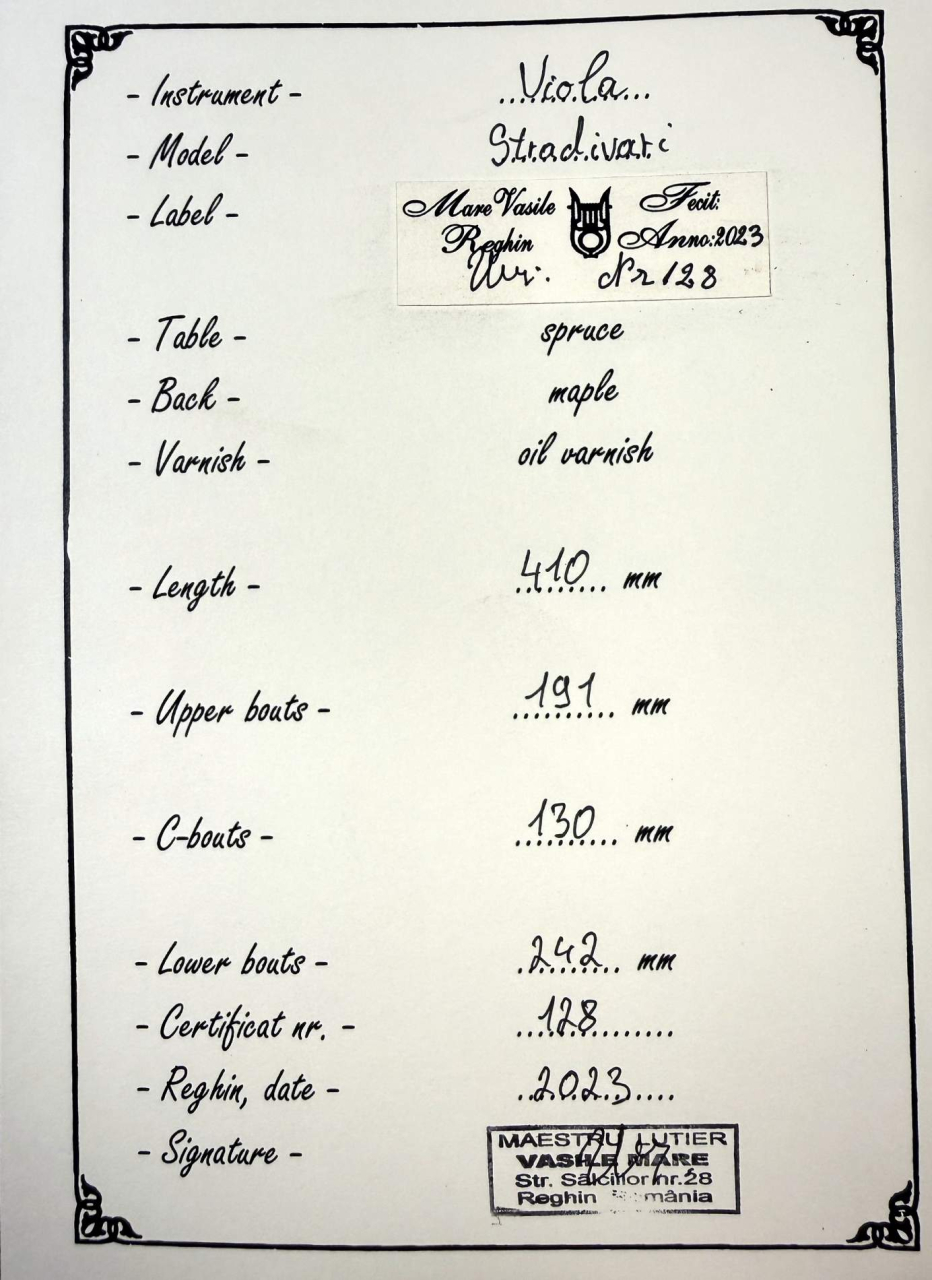 - Instrument - ...Viola...
- Model - Stradivari
- Label - Mare Vasile Fecit:
Reghin Anno:2023
Nr 128
- Table - spruce
- Back - maple
- Varnish - oil varnish
- Length - 410 mm
- Upper bouts - 191 mm
- C-bouts - 130 mm
- Lower bouts - 242 mm
- Certificat nr. - 128
- Reghin, date - 2023
- Signature - MAESTRU LUTIER
VASILE MARE
Str. Sălciilor nr.28
Reghin România